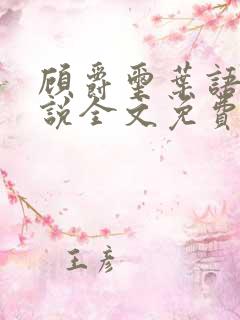 顾爵墨葉語
說全文免費
王彥